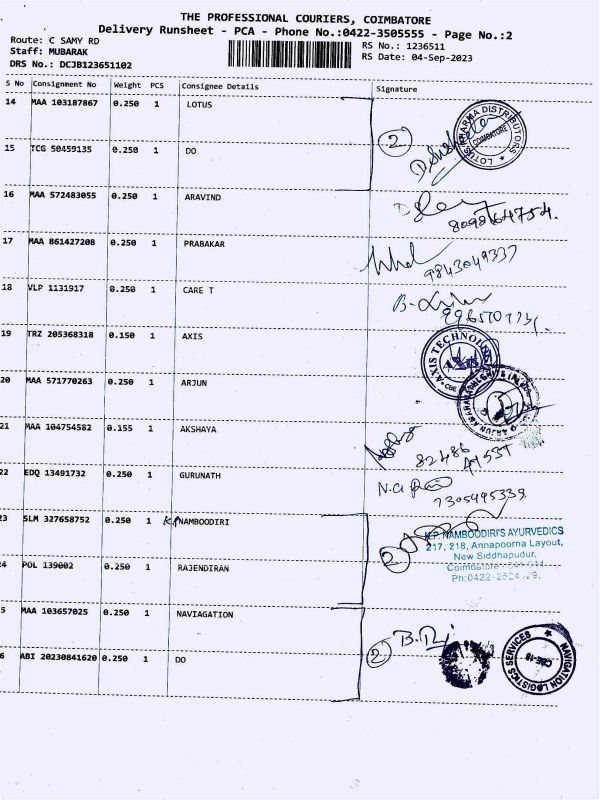 THE PROFESSIONAL COURIERS, COIMBATORE
Delivery Runsheet - PCA - Phone No.:0422-3505555 - Page No.:2
Route: C SAMY RD
Staff: MUBARAK
DRS No.: DCJB123651102
RS No.: 1236511
RS Date: 04-Sep-2023
S No Consignment No Weight PCS Consignee Details Signature
14 MAA 103187867 0.250 1 LOTUS
2
LOTUS PHARMA DISTRIBUTORS
COIMBATORE
15 TCG 50459135 0.250 1 DO
16 MAA 572483055 0.250 1 ARAVIND
8098164754.
17 MAA 861427208 0.250 1 PRABAKAR
9843049337
18 VLP 1131917 0.250 1 CARE T
19 TRZ 205368318 0.150 1 AXIS
AXIS TECHNOLOGY
20 MAA 571770263 0.250 1 ARJUN
21 MAA 104754582 0.155 1 AKSHAYA
82486
22 EDQ 13491732 0.250 1 GURUNATH
7305495339
23 SLM 327658752 0.250 1 K.P NAMBOODIRI
K.P. NAMBOODIRI'S AYURVEDICS
217, 218, Annapoorna Layout,
New Siddhapudur,
Coimbatore
Ph:0422-2524
2
24 POL 139002 0.250 1 RAJENDIRAN
5 MAA 103657025 0.250 1 NAVIAGATION
2
NAVIGATION LOGISTICS SERVICES
CBE-18
6 ABI 20230841620 0.250 1 DO